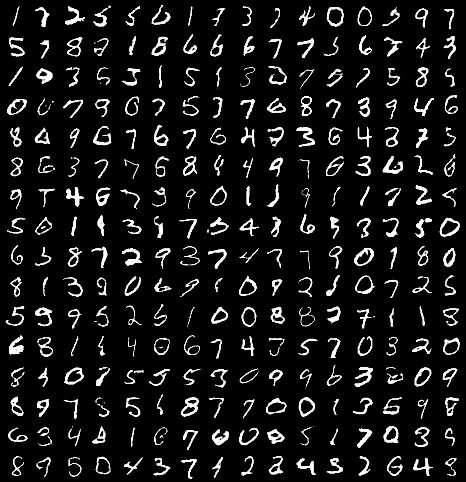 1 7 2 5 5 6 1 7 3 7 4 0 0 5 9 7
5 7 8 2 1 8 6 6 6 7 7 5 6 7 4 3
1 9 3 5 5 1 5 1 3 0 7 5 7 5 8 5
0 0 7 9 6 7 5 3 7 6 8 7 3 9 4 6
8 9 6 7 6 7 6 4 7 3 6 4 3 7 5
8 6 3 7 7 6 8 4 9 7 6 3 6 2 6
9 7 4 6 7 9 9 0 1 1 9 1 1 7 2 5
5 0 1 1 3 9 7 5 4 8 6 5 3 2 5 0
6 5 8 7 2 9 3 7 4 7 7 9 0 1 8 0
8 1 3 9 0 6 9 1 0 9 2 1 0 7 2 5
5 9 9 5 2 5 1 0 0 8 8 7 7 1 1 8
6 8 1 1 4 0 6 7 4 7 5 7 0 3 2 0
8 4 0 7 5 5 5 3 0 9 9 6 3 8 0 9
8 9 7 8 5 6 8 7 7 0 0 1 3 6 9 8
6 3 4 1 6 7 6 0 8 5 1 7 0 3 9
8 9 5 0 4 3 7 1 2 8 4 3 2 6 4 8